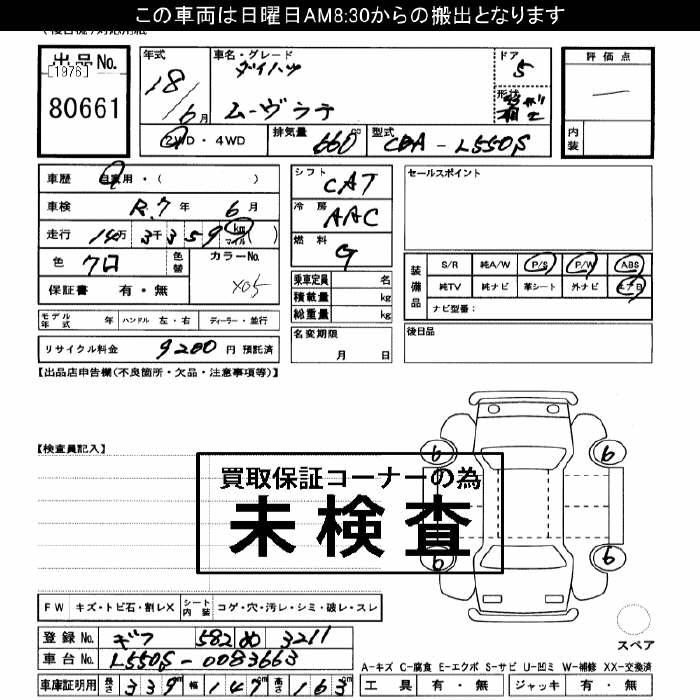 この車両は日曜日AM8:30からの搬出となります
出品No.
[1976]
80661
年式
18/6月
車名・グレード
ダイハツ
ムーヴラテ
ドア
5
形状
2WD・4WD
排気量
660cc
型式
CBA-L550S
評価点
内装
車歴 自家用・( )
車検 R.7年 6月
走行 14万3千359 km マイル ( )
色 クロ 色替
カラーNo.
X05
保証書 有・無
モデル年式 年 ハンドル 左・右 ディーラー・並行
リサイクル料金 9200円 預託済
シフト
CAT
冷房
AAC
燃料
G
乗車定員 名
積載量 kg
総重量 kg
名変期限
月 日
セールスポイント
装備品
S/R 純A/W P/S P/W ABS
純TV 純ナビ 革シート 外ナビ エアB
ナビ型番:
後日品
【出品店申告欄(不良箇所・欠品・注意事項等)】
【検査員記入】
6 6
6 6
買取保証コーナーの為
未検査
FW キズ・トビ石・割レX シート内装 コゲ・穴・汚レ・シミ・破レ・スレ
登録No. ギフ 582 め 3211
車台No. L550S-0083663
車庫証明用 長さ 339cm 幅 147cm 高さ 163cm
スペア
A-キズ C-腐食 E-エクボ S-サビ U-凹ミ W-補修 XX-交換済
工具 有・無 ジャッキ 有・無